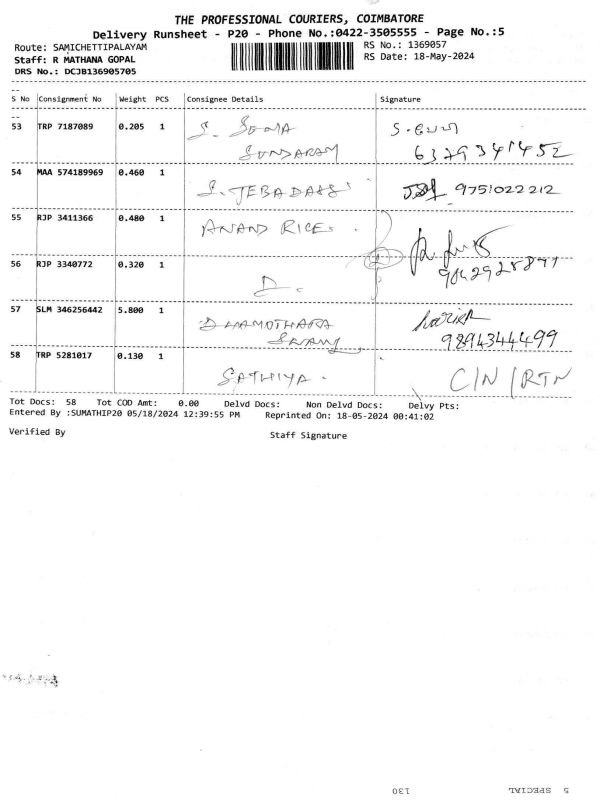 THE PROFESSIONAL COURIERS, COIMBATORE
Delivery Runsheet - P20 - Phone No.:0422-3505555 - Page No.:5
Route: SAMICHETTIPALAYAM
RS No.: 1369057
Staff: R MATHANA GOPAL
RS Date: 18-May-2024
DRS No.: DCJB136905705
S No Consignment No Weight PCS Consignee Details Signature
53 TRP 7187089 0.205 1 S. SOMA
SUNDARAM 6379341452
54 MAA 574189969 0.460 1 S. JEBADASS 9751022212
55 RJP 3411366 0.480 1 ANAND RICE.
56 RJP 3340772 0.320 1 D.
57 SLM 346256442 5.800 1 DHAMOTHARA
9894344499
58 TRP 5281017 0.130 1 SATHIYA. C/N/RTN
Tot Docs: 58 Tot COD Amt: 0.00 Delvd Docs: Non Delvd Docs: Delvy Pts:
Entered By :SUMATHIP20 05/18/2024 12:39:55 PM Reprinted On: 18-05-2024 00:41:02
Verified By Staff Signature
130 SPECIAL 5